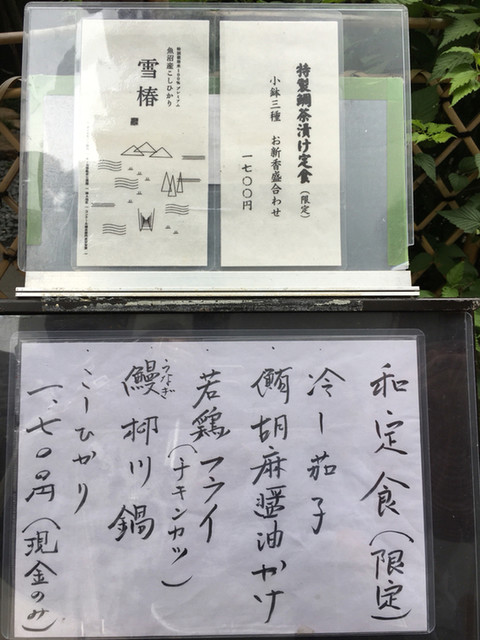 特製鯛茶漬け定食（限定）
小鉢三種　お新香盛合わせ
一七〇〇円
魚沼産こしひかり
雪椿
和定食（限定）
・冷し茄子
・鮪胡麻醤油かけ
・若鶏フライ
（チキンカツ）
・鰻柳川鍋
うなぎ
・こしひかり
一、七〇〇円（現金のみ）